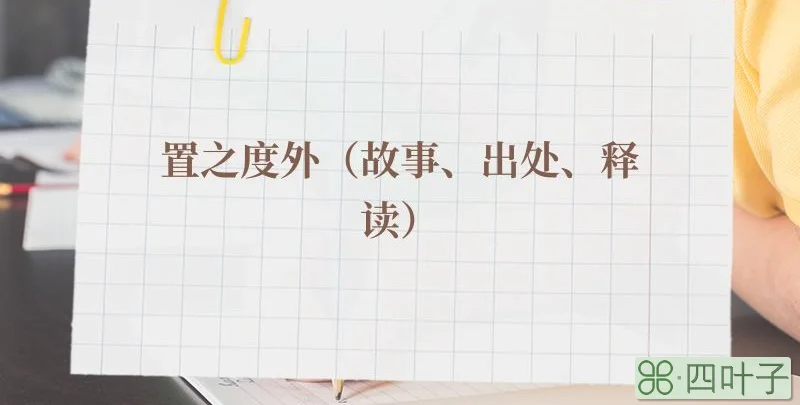 置之度外（故事、出处、释
读）
四叶子